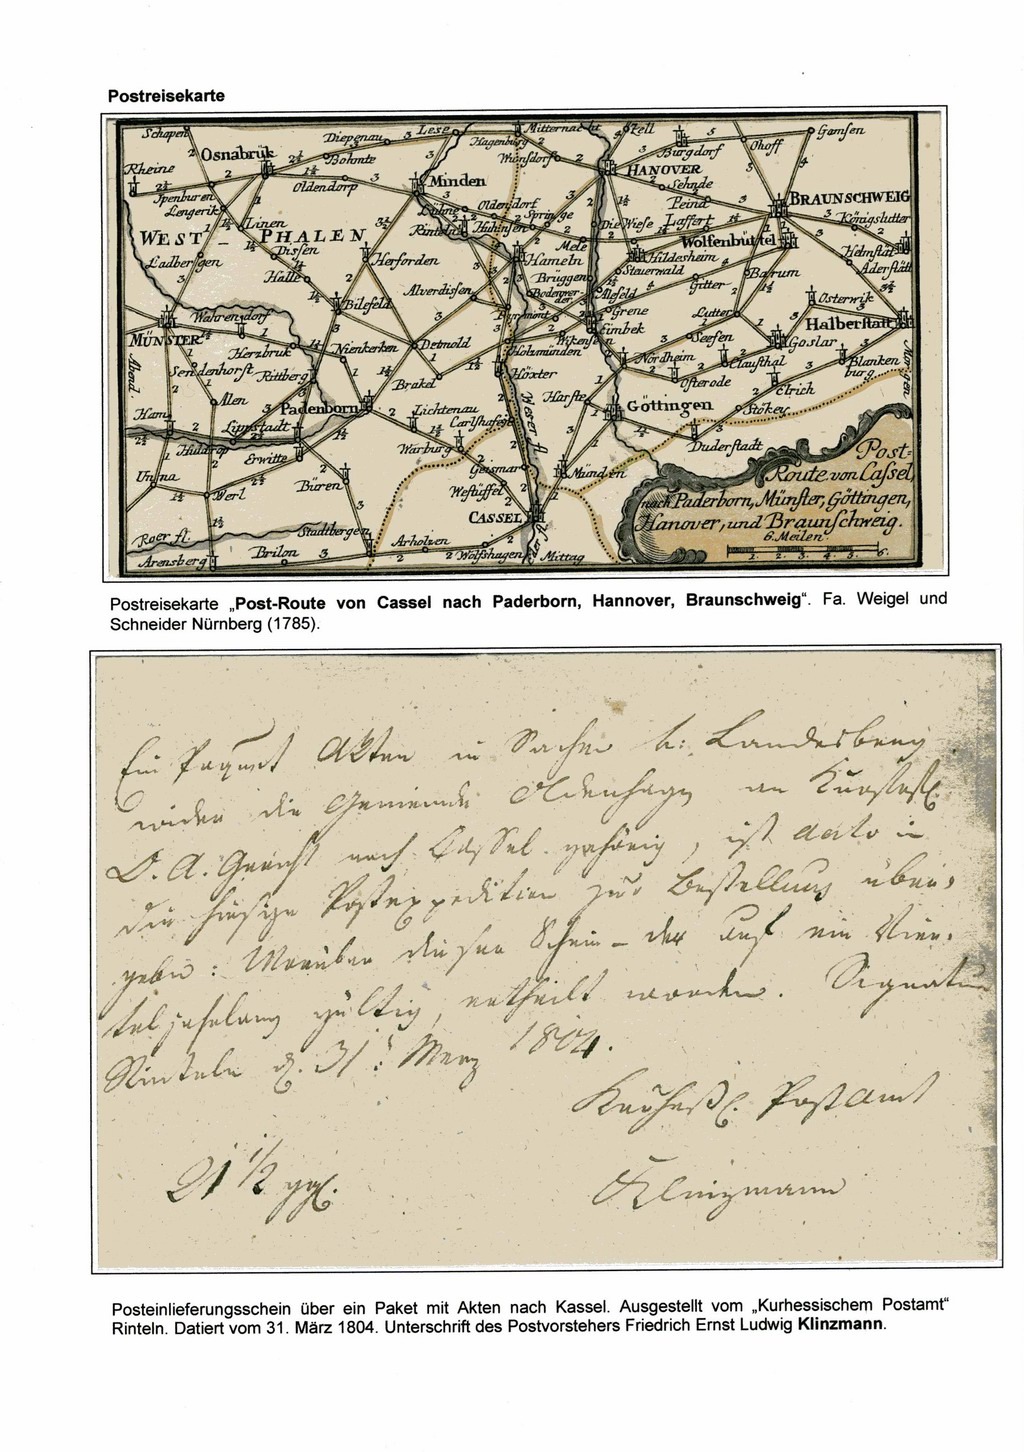 Postreisekarte
Schapen
Diepenau
Lese
Hagenburg
Mitternacht
Zell
Gamsen
Osnabrük
Bohmte
Wunsdorf
Burgdorf
Ohoff
Rheine
Oldendorp
Minden
HANOVER
Sehnde
Ippenburen
Lengerik
Oldendorf
Peina
BRAUNSCHWEIG
Linen
Lübne
Springe
Die Wiese
Laffert
Königslutter
WEST-PHALEN
Rinteln
Wolfenbüttel
Dissen
Mele
Hildesheim
Helmstät
Ladbergen
Herforden
Hameln
Steuerwald
Halle
Brüggen
Barum
Alverdissen
Alefeld
Gitter
Bilefeld
Osterwik
Warendorf
Pyrmont
Grene
Lutter
Halberstatt
MÜNSTER
Einbek
Seesen
Goslar
Herzbruk
Nienkerken
Detmold
Holzmünden
Nordheim
Clausthal
Blankenburg
Abend.
Morgen.
Sendenhorst
Rittberg
Höxter
Osterode
Brakel
Elrich
Alen
Harste
Ham
Paderborn
Lichtenau
Göttingen
Stökey
Lippstadt
Carlshafen
Weser fl.
Duderstadt
Erwitte
Warburg
Geismar
Münden
Unna
Büren
Westüffel
Werl
CASSEL
Roer fl.
Stadtbergen
Arolzen
Arensberg
Brilon
Wolfshagen
Mittag
Post-
Route von Cassel,
nach Paderborn, Münster, Göttingen,
Hanover, und Braunschweig.
6. Meilen
1. 2. 3. 4. 5. 6.
Postreisekarte „Post-Route von Cassel nach Paderborn, Hannover, Braunschweig“. Fa. Weigel und
Schneider Nürnberg (1785).
Ein Paquet Akten in Sachen Landesberg
wider die Gemeinde Oldenhagen an
O. A. Gericht nach Cassel gehörig, ist dato in
die hiesige Postexpedition zur Bestellung über-
geben: Worüber dieser Schein - der auf ein Vier-
teljahrlang gültig, ertheilt worden. Signatum
Rinteln d. 31. Merz 1804.
Kurheßl. Postamt
21 1/2 ggl. Klinzmann
Posteinlieferungsschein über ein Paket mit Akten nach Kassel. Ausgestellt vom „Kurhessischem Postamt“
Rinteln. Datiert vom 31. März 1804. Unterschrift des Postvorstehers Friedrich Ernst Ludwig Klinzmann.